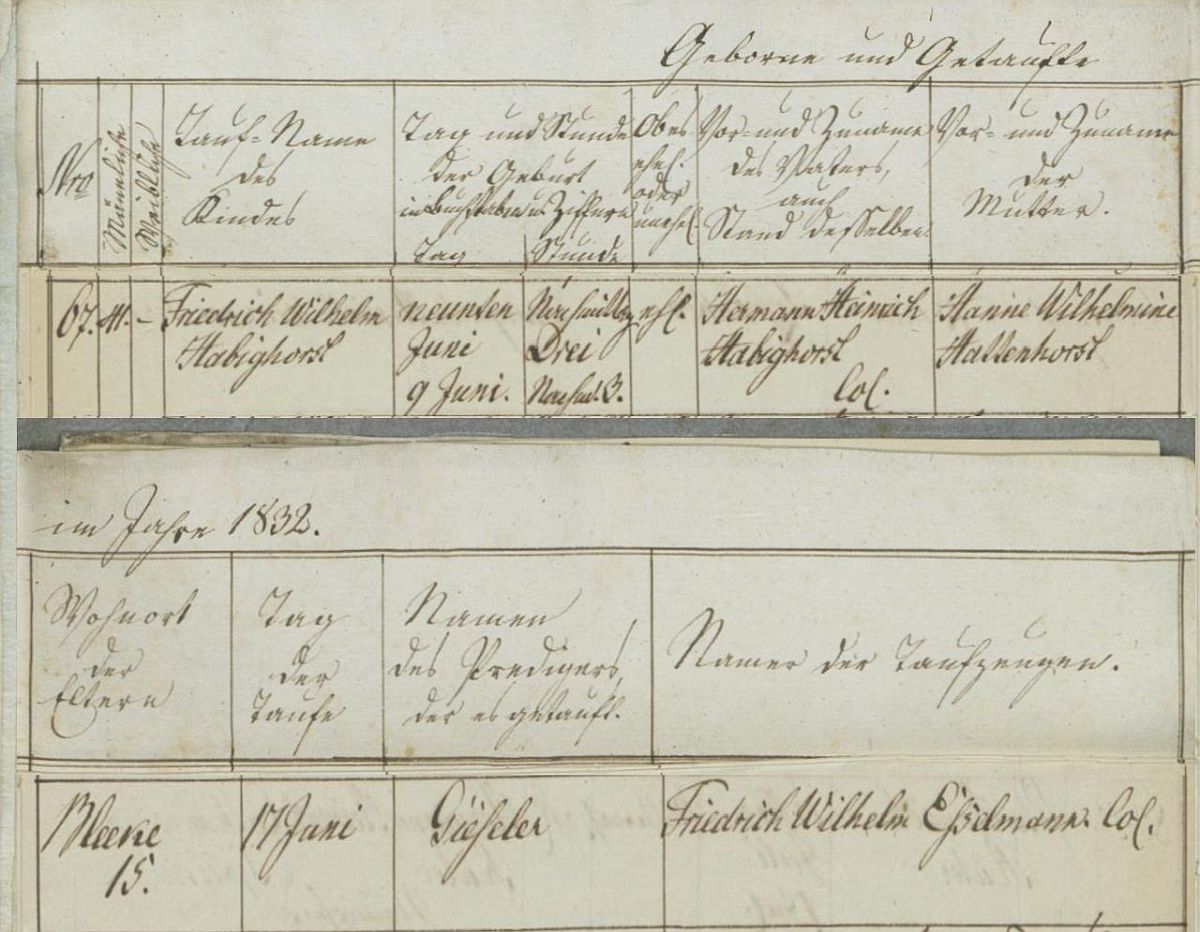 Geborne und Getaufte
Nro
Männliche
Weibliche
Tauf-Name
des
Kindes
Tag und Stunde
der Geburt
in Buchstaben u. Ziffern
Tag
Stunde
Ob es
ehel.
oder
unehel.
Vor- und Zuname
des Vaters,
auch
Stand desselben.
Vor- und Zuname
der
Mutter.
67.
M.
-
Friedrich Wilhelm
Habighorst
neunten
Juni
9 Juni.
Nachmittag
Drei
Nachm. 3.
ehl.
Hermann Heinrich
Habighorst
Col.
Hanne Wilhelmine
Hallenhorst
im Jahre 1832.
Wohnort
der
Eltern
Tag
der
Taufe
Namen
des Predigers,
der es getauft.
Namen der Taufzeugen.
15.
17 Juni
Gieseler
Friedrich Wilhelm Eßelmann. Col.